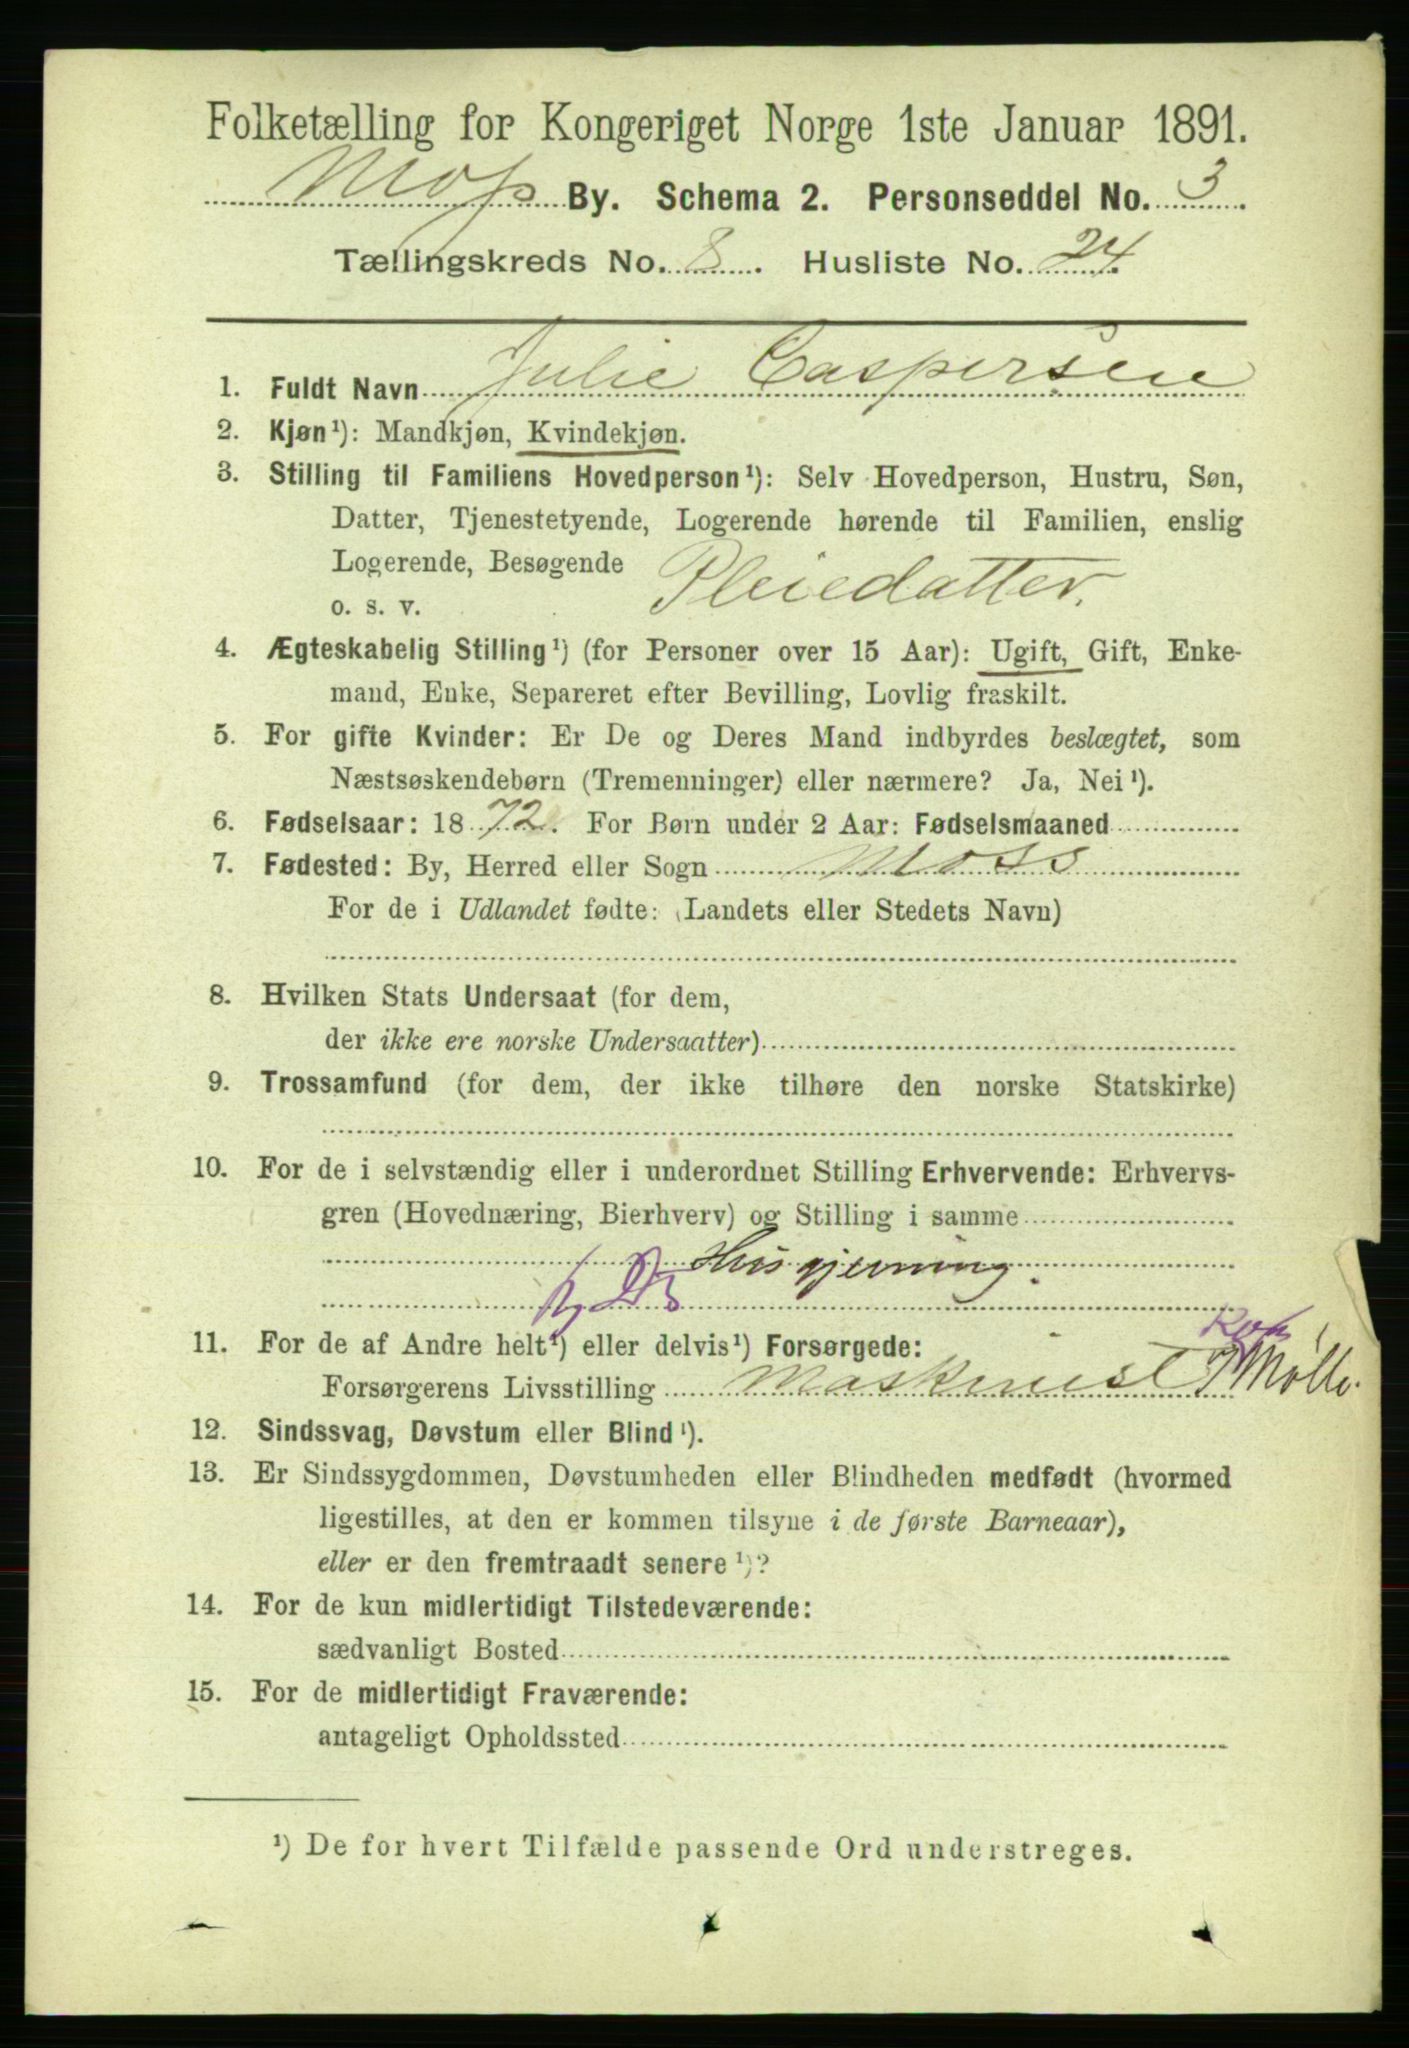 Folketælling for Kongeriget Norge 1ste Januar 1891.
Moss By. Schema 2. Personseddel No. 3.
Tællingskreds No. 8. Husliste No. 24.
1. Fuldt Navn Julie Caspersen
2. Kjøn¹): Mandkjøn, Kvindekjøn.
3. Stilling til Familiens Hovedperson¹): Selv Hovedperson, Hustru, Søn,
Datter, Tjenestetyende, Logerende hørende til Familien, enslig
Logerende, Besøgende Pleiedatter.
o. s. v.
4. Ægteskabelig Stilling¹) (for Personer over 15 Aar): Ugift, Gift, Enke-
mand, Enke, Separeret efter Bevilling, Lovlig fraskilt.
5. For gifte Kvinder: Er De og Deres Mand indbyrdes beslægtet, som
Næstsøskendebørn (Tremenninger) eller nærmere? Ja, Nei¹).
6. Fødselsaar: 1872. For Børn under 2 Aar: Fødselsmaaned
7. Fødested: By, Herred eller Sogn Moss
For de i Udlandet fødte: (Landets eller Stedets Navn)
8. Hvilken Stats Undersaat (for dem,
der ikke ere norske Undersaatter)
9. Trossamfund (for dem, der ikke tilhøre den norske Statskirke)
10. For de i selvstændig eller i underordnet Stilling Erhvervende: Erhvervs-
gren (Hovednæring, Bierhverv) og Stilling i samme
Husgjerning.
11. For de af Andre helt¹) eller delvis¹) Forsørgede:
Forsørgerens Livsstilling Maskinist Mølle.
12. Sindssvag, Døvstum eller Blind¹).
13. Er Sindssygdommen, Døvstumheden eller Blindheden medfødt (hvormed
ligestilles, at den er kommen tilsyne i de første Barneaar),
eller er den fremtraadt senere¹)?
14. For de kun midlertidigt Tilstedeværende:
sædvanligt Bosted
15. For de midlertidigt Fraværende:
antageligt Opholdssted
¹) De for hvert Tilfælde passende Ord understreges.